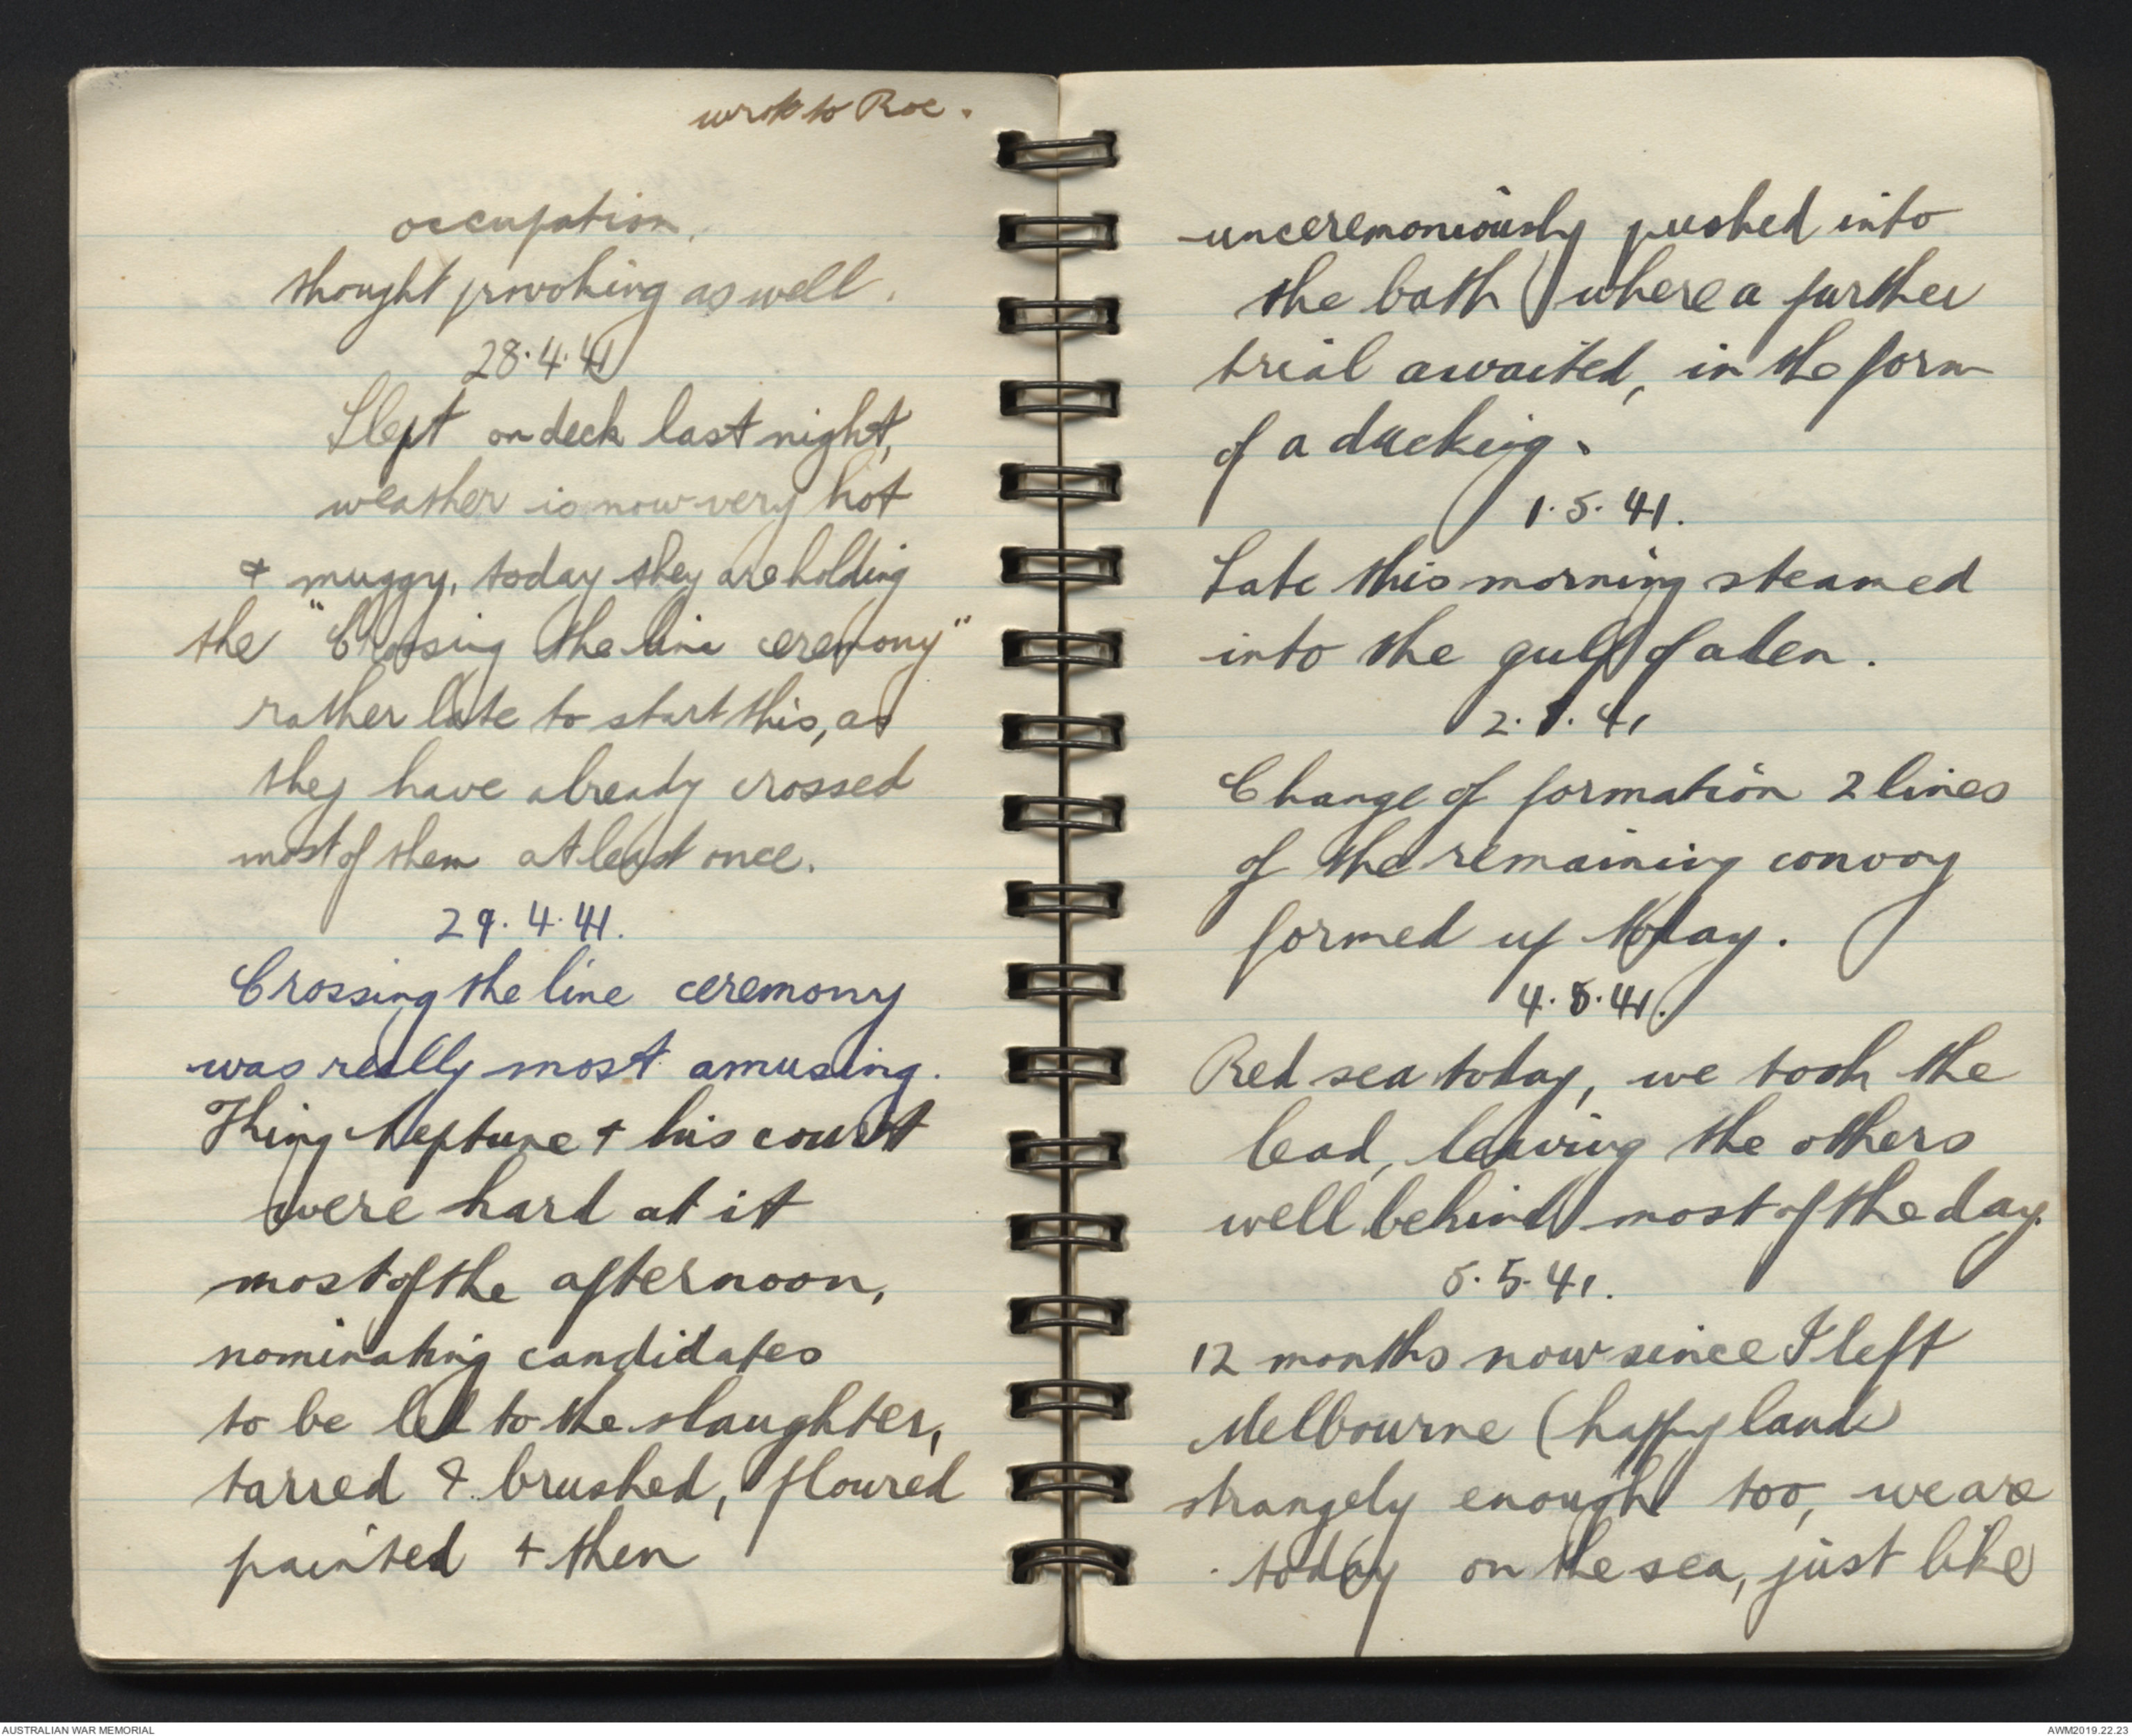 wrote to Roe.
occupation.
thought provoking as well.
28.4.41
Slept on deck last night,
weather is now very hot
& muggy, today they are holding
the "Crossing the line ceremony"
rather late to start this, as
they have already crossed
most of them at least once.
29.4.41.
Crossing the line ceremony
was really most amusing.
King Neptune + his court
were hard at it
most of the afternoon,
nominating candidates
to be led to the slaughter,
tarred & brushed, floured
painted + then
unceremoniously pushed into
the bath where a further
trial awaited, in the form
of a ducking.
1.5.41.
Late this morning steamed
into the gulf of aden.
2.5.41
Change of formation 2 lines
of the remaining convoy
formed up today.
4.5.41.
Red sea today, we took the
lead, leaving the others
well behind most of the day.
5.5.41.
12 months now since I left
Melbourne (happy land)
strangely enough too, we are
today on the sea, just like
AUSTRALIAN WAR MEMORIAL
AWM2019.22.23